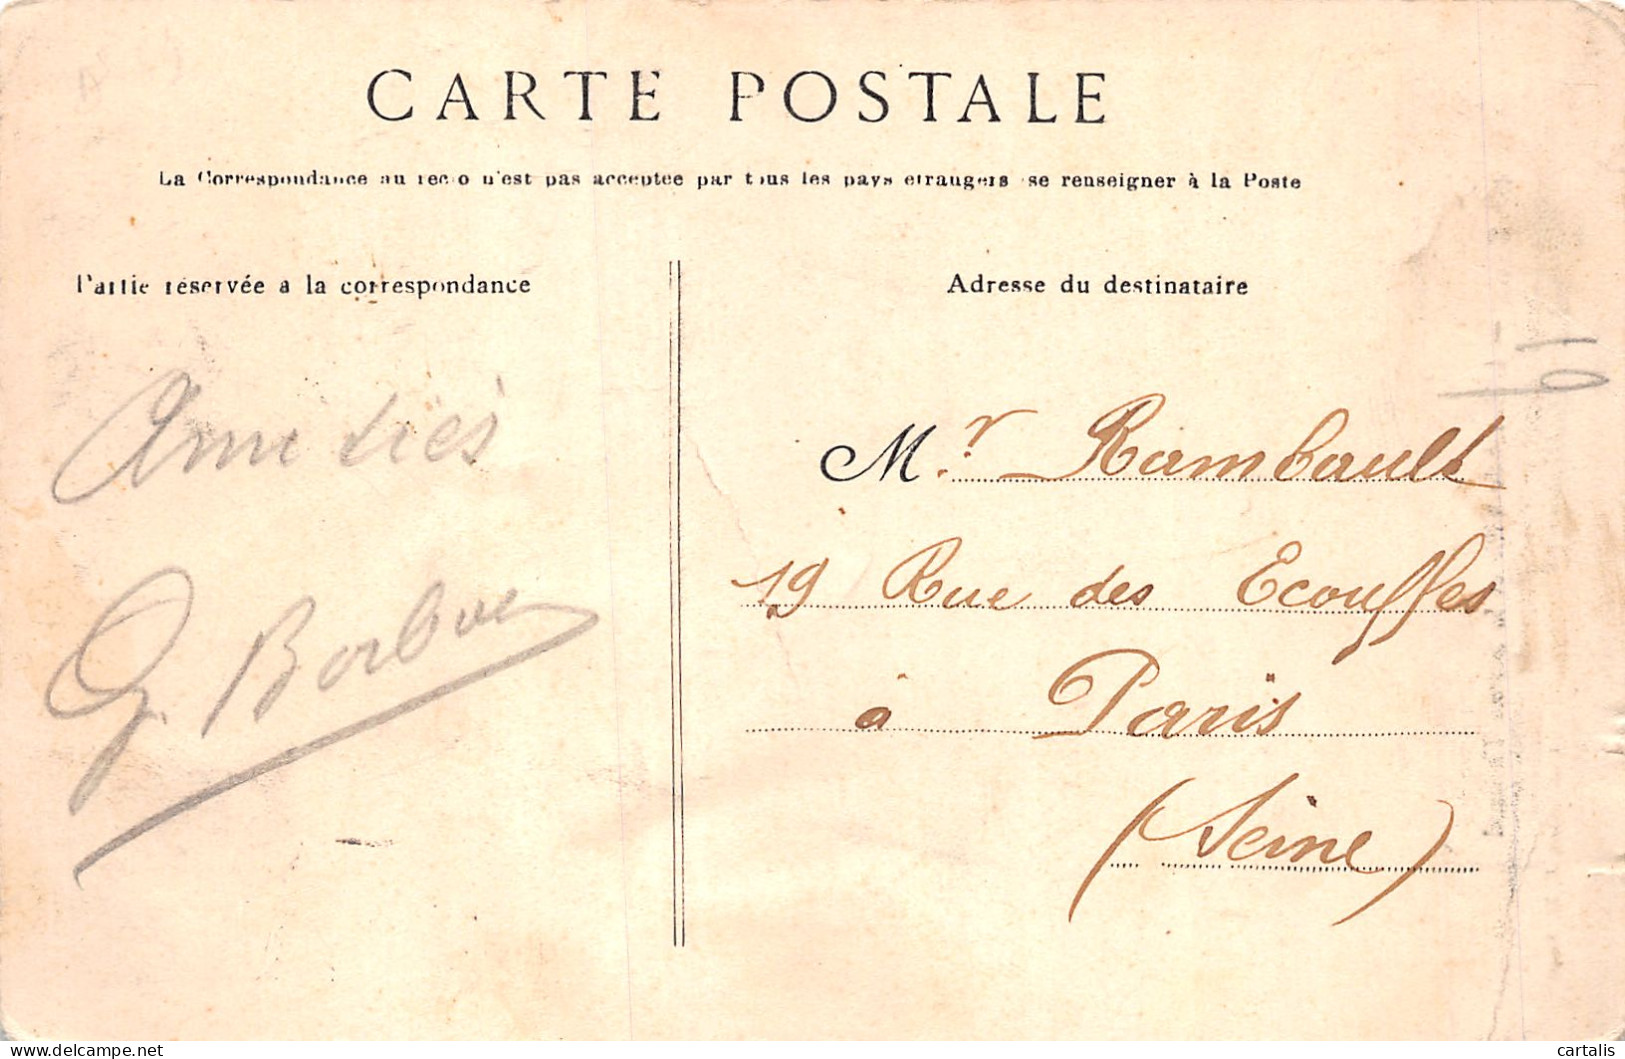 CARTE POSTALE
La Correspondance au recto n'est pas acceptee par tous les pays etrangers se renseigner à la Poste
Partie réservée a la correspondance
Adresse du destinataire
Amitiés
G. Barbue
M.r Rambault
19 Rue des Ecouffes
à Paris
(Seine)
61
cartalis
delcampe.net